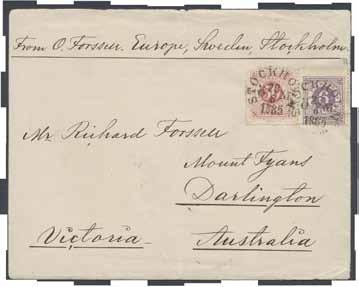 From O. Forssell. Europe, Sweden, Stockholm.
STOCKHOLM
1885
STOCKHOLM
1885
Mr. Richard Forssell
Mount Fyans
Darlington
Victoria
Australia